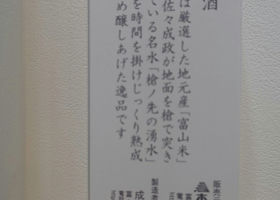 酒
は厳選した地元産「富山米」
佐々成政が地面を槍で突き
ている名水「槍ノ先の湧水」
を時間を掛けじっくり熟成
め醸しあげた逸品です
販売
製造者
成